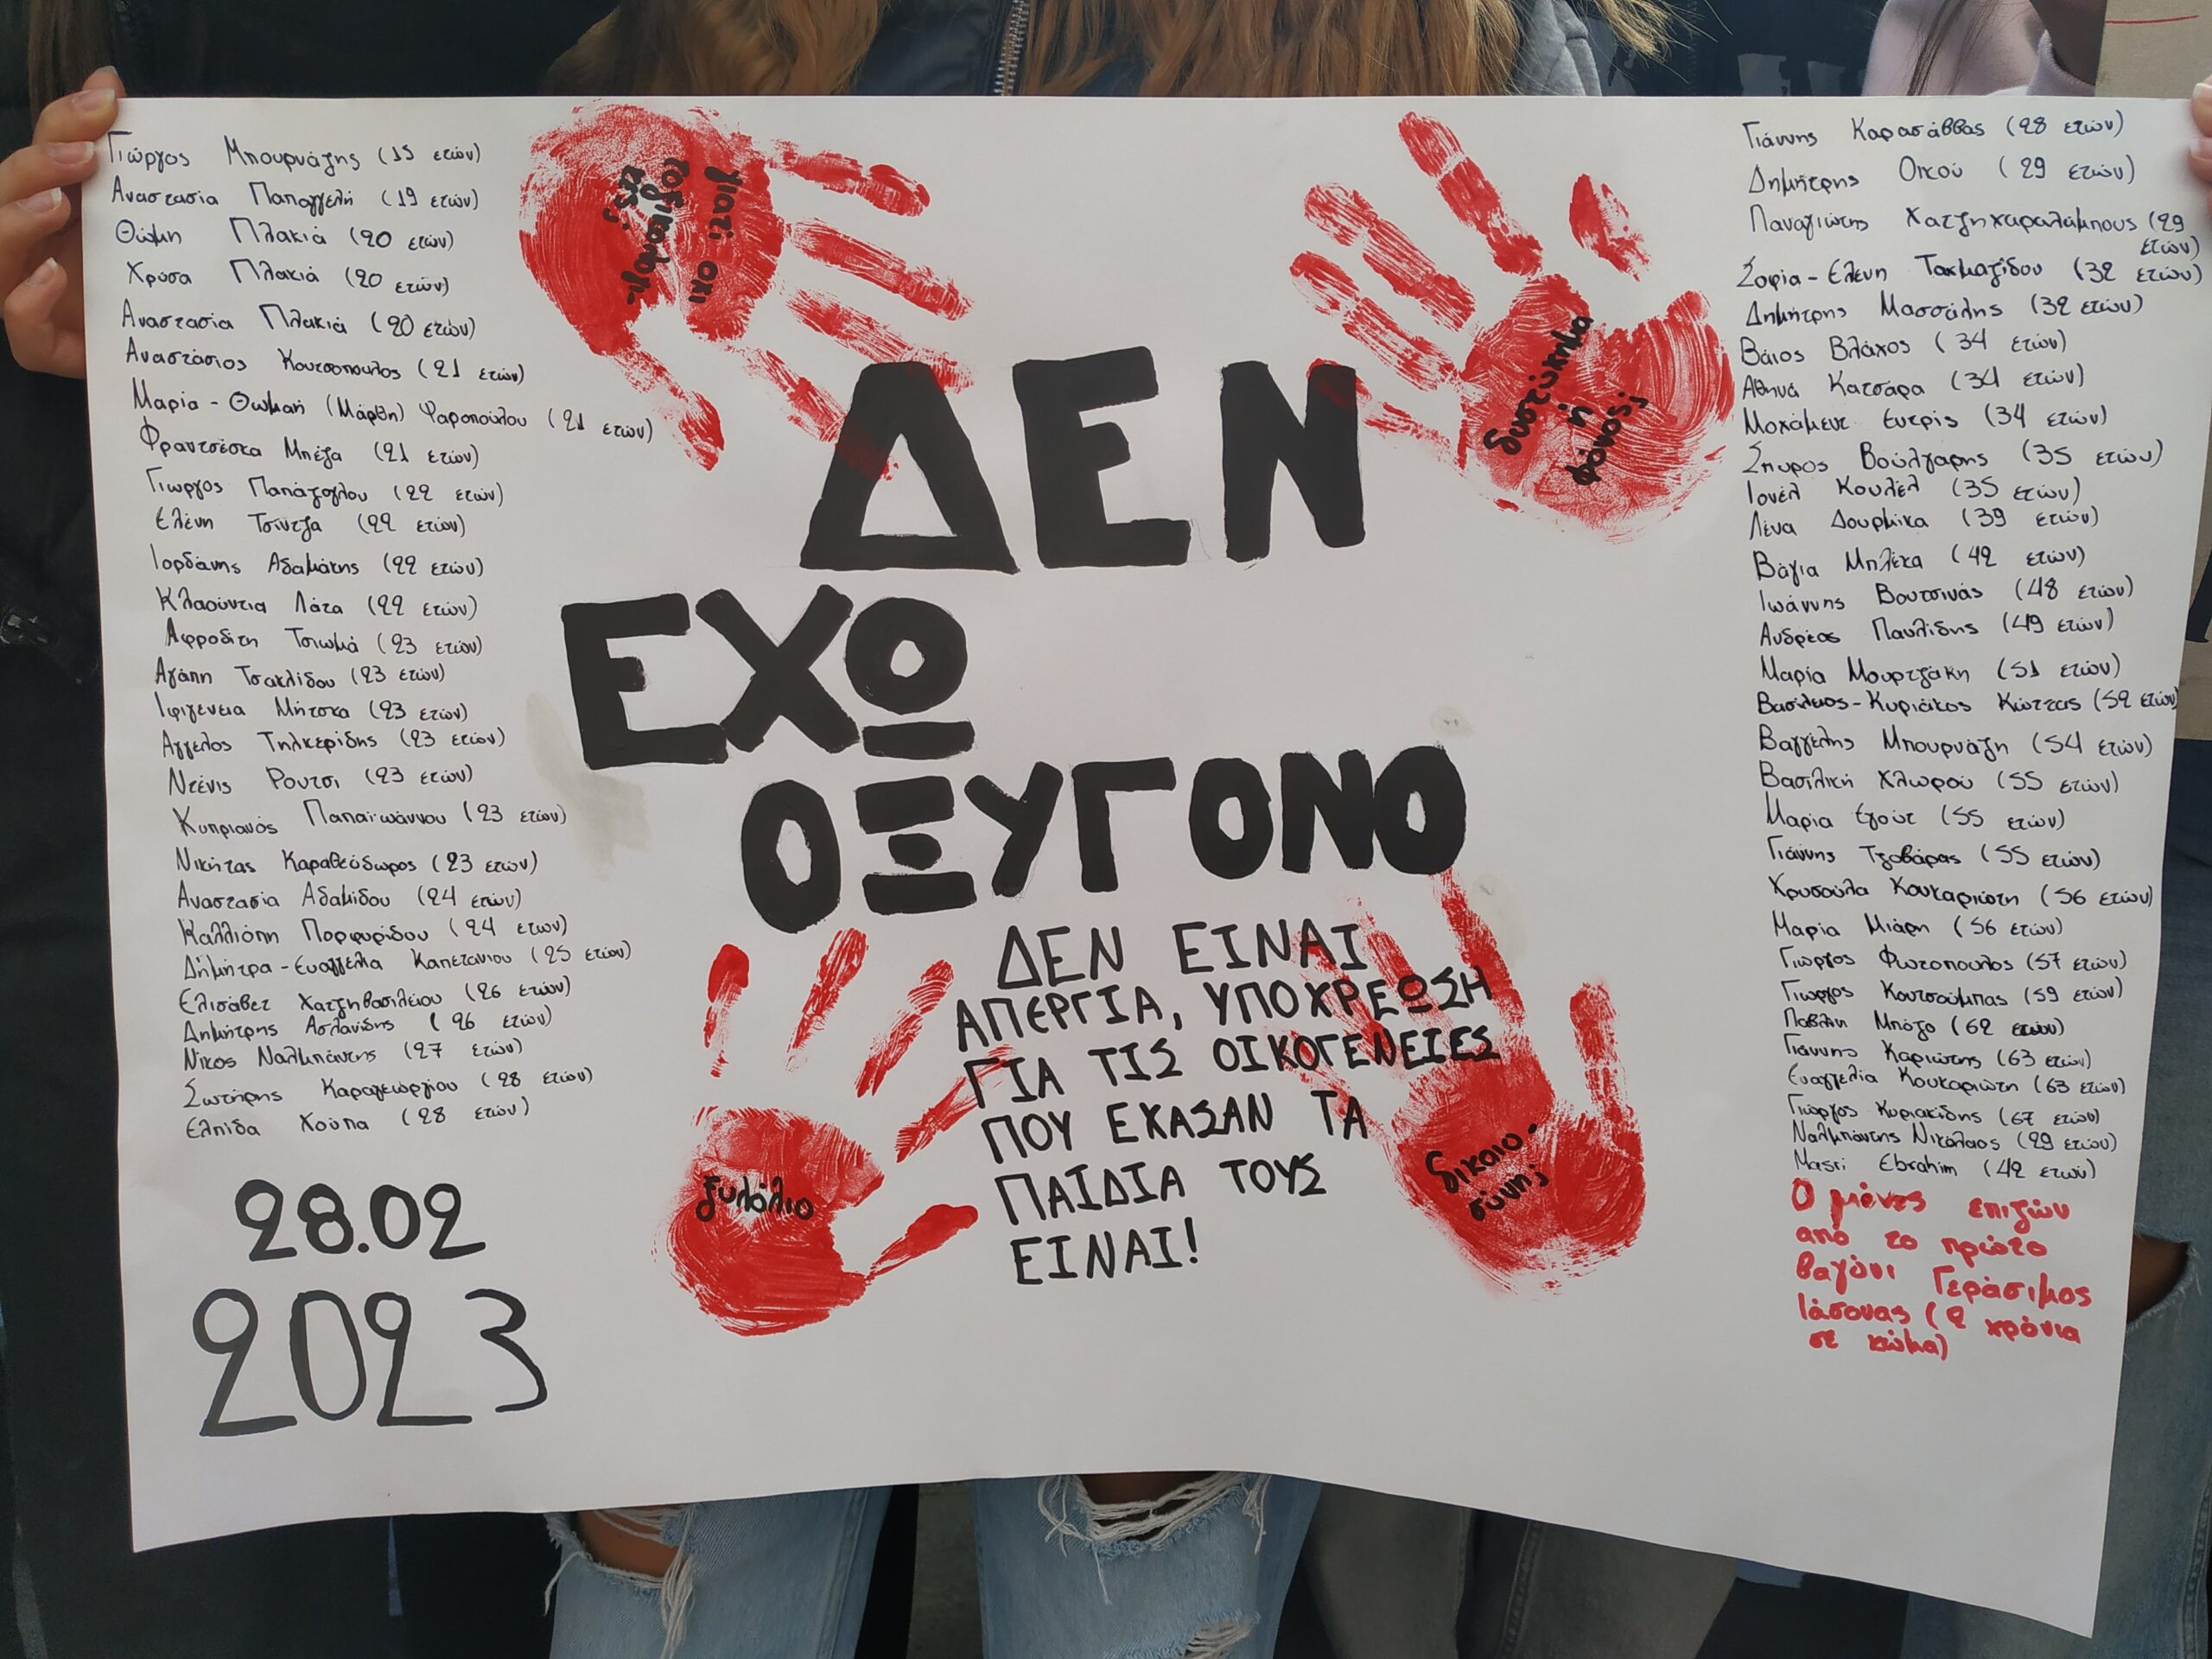 Γιώργος Μπουρνάζης (15 ετών)
Αναστασία Παπαγγελή (19 ετών)
Θώμη Πλακιά (20 ετών)
Χρύσα Πλακιά (20 ετών)
Αναστασία Πλακιά (20 ετών)
Αναστάσιος Κουτσοπουλος (21 ετών)
Μαρία - Θωμαή (Μάρθη) Ψαροπούλου (21 ετών)
Φραντσέσκα Μπέζα (21 ετών)
Γιωργος Παπάζογλου (22 ετών)
Ελένη Τσίντζα (22 ετών)
Ιορδάνης Αδαμάκης (22 ετών)
Κλαούντια Λάτα (22 ετών)
Αφροδίτη Τσιωμά (23 ετών)
Αγάπη Τσακλίδου (23 ετών)
Ιφιγενεια Μήτσκα (23 ετών)
Αγγελος Τηλκερίδης (23 ετών)
Ντένις Ρουτσι (23 ετών)
Κυπριανός Παπαϊωάννου (23 ετών)
Νικήτας Καραθεόδωρος (23 ετών)
Αναστασία Αδαμίδου (24 ετών)
Καλλιόπη Πορφυρίδου (24 ετών)
Δήμητρα - Ευαγγελια Καπετανιου (25 ετών)
Ελισάβετ Χατζηβασιλείου (26 ετών)
Δημήτρης Ασλανίδης (26 ετών)
Νικος Ναλμπάντης (27 ετών)
Σωτήρης Καραγεωργίου (28 ετών)
Ελπίδα Χούπα (28 ετών)
28.02
2023
γιατί όχι
τοξικολογι-
κές;
δυστύχημα
ή
φόνος;
ΔΕΝ
ΕΧΩ
ΟΞΥΓΟΝΟ
ΔΕΝ ΕΙΝΑΙ
ΑΠΕΡΓΙΑ, ΥΠΟΧΡΕΩΣΗ
ΓΙΑ ΤΙΣ ΟΙΚΟΓΕΝΕΙΕΣ
ΠΟΥ ΕΧΑΣΑΝ ΤΑ
ΠΑΙΔΙΑ ΤΟΥΣ
ΕΙΝΑΙ!
ξυλόλιο
δικαιο-
σύνη;
Γιάννης Καρασάββας (28 ετών)
Δημήτρης Οικού (29 ετών)
Παναγιώτης Χατζηχαραλάμπους (29
ετών)
Σοφία - Ελένη Τακμαζίδου (32 ετών)
Δημήτρης Μασσάλης (32 ετών)
Βάιος Βλάχος (34 ετών)
Αθηνά Κατσάρα (34 ετών)
Μοχάμεντ Εντρίς (34 ετών)
Σπυρος Βούλγαρης (35 ετών)
Ιονέλ Κουλέλ (35 ετών)
Λένα Δουρμίκα (39 ετών)
Βάγια Μπλέκα (42 ετών)
Ιωάννης Βουτσινάς (48 ετών)
Ανδρέας Παυλίδης (49 ετών)
Μαρία Μουρτζάκη (51 ετών)
Βασίλειος - Κυριάκος Κώττας (52 ετών)
Βαγγέλης Μπουρνάζη (54 ετών)
Βασιλική Χλωρού (55 ετών)
Μαρία Εγούτ (55 ετών)
Γιάννης Τζοβάρας (55 ετών)
Χρυσούλα Κουκαριώτη (56 ετών)
Μαρία Μιάρη (56 ετών)
Γιώργος Φωτοπουλος (57 ετών)
Γιωργος Κουτσούμπας (59 ετών)
Παβλίν Μπόζο (62 ετών)
Γιάννης Καριώτης (63 ετών)
Ευαγγελία Κουκαριώτη (63 ετών)
Γιώργος Κυριακίδης (67 ετών)
Ναλμπάντης Νικόλαος (29 ετών)
Masri Ebrahim (42 ετών)
Ο μόνος επιζών
από το πρώτο
βαγόνι Γεράσιμος
Ιάσονας (2 χρόνια
σε κώμα)